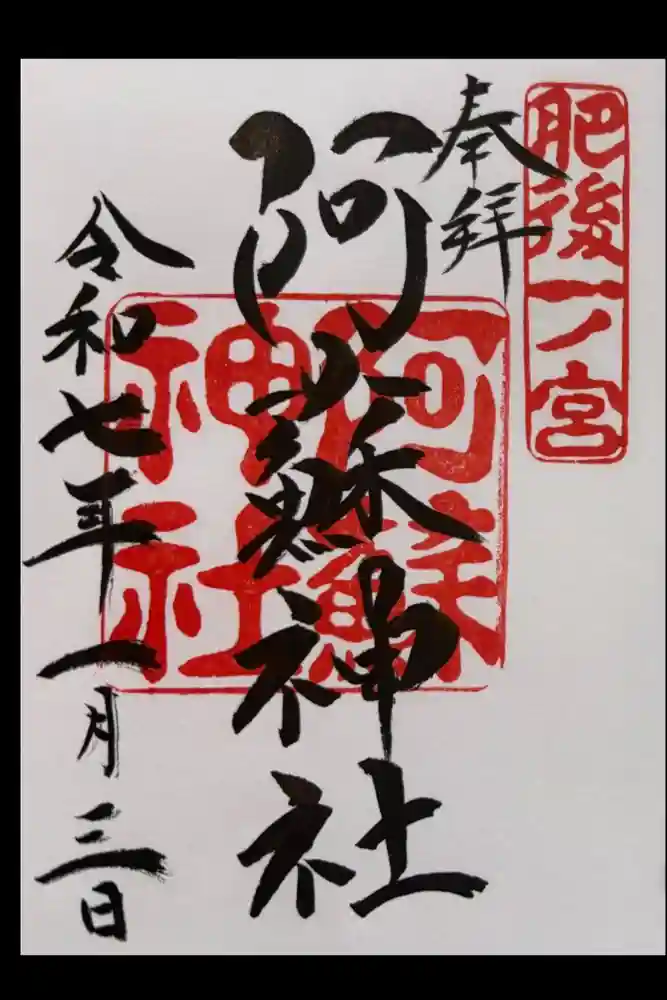 肥後一ノ宮
奉拝
阿蘇神社
阿蘇
神社
令和七年一月三日